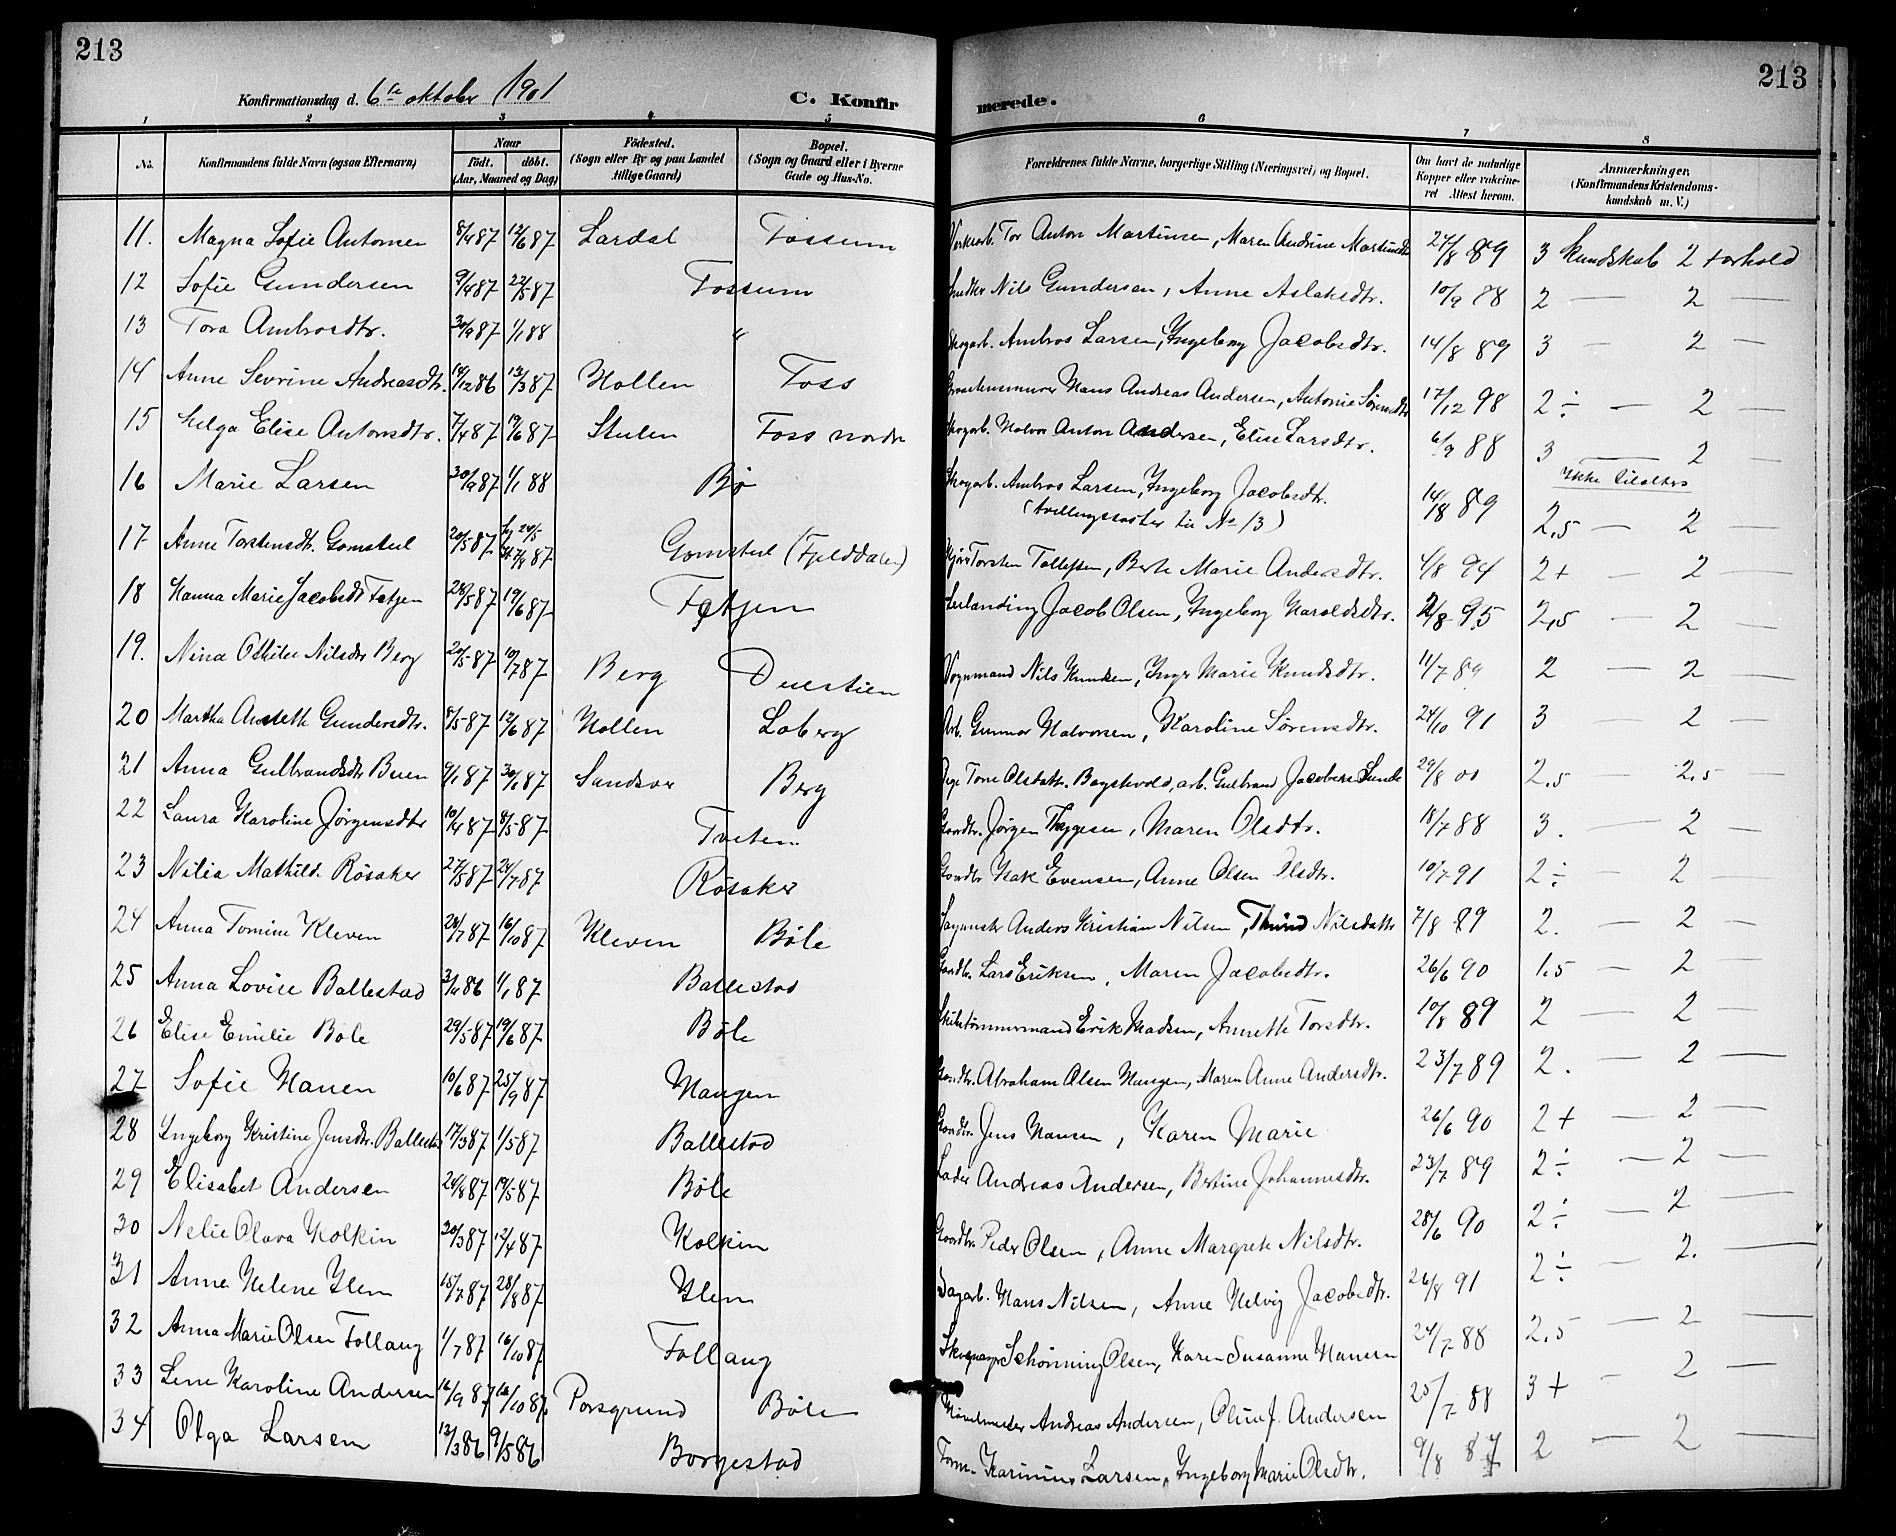 213
213
Konfirmationsdag d. 6te oktober 1901 C. Konfirmerede.
1 2 3 4 5 6 7 8
No. Konfirmandens fulde Navn (ogsaa Efternavn) Naar födt. döbt. (Aar, Maaned og Dag) Födested. (Sogn eller By og paa Landet tillige Gaard) Bopæl. (Sogn og Gaard eller i Byerne Gade og Hus-No. Forældrenes fulde Navne, borgerlige Stilling (Næringsvei) og Bopæl. Om havt de naturlige Kopper eller vakcineret Attest herom. Anmærkninger. (Konfirmandens Kristendomskundskab m. V.)
11. Magna Sofie Antonsen 8/4 87 12/6 87 Lardal Fossum Verksarb. Tor Anton Martinsen, Maren Andrine Martinsdtr 27/8 89 3 Kundskab 2 forhold
12 Sofie Gundersen 9/4 87 22/5 87 Fossum Snedker Nils Gundersen, Anne Aslaksdtr. 10/9 88 2 — 2 —
13 Tora Ambrosdtr. 30/9 87 1/1 88 " Skogarb. Ambros Larsen, Ingeborg Jacobsdtr. 14/8 89 3 — 2 —
14 Anne Sevrine Andreasdtr. 14/12 86 13/3 87 Hollen Foss Hans Andreas Andersen, Antonie Sörensdtr 17/12 98 2÷ — 2 —
15 Helga Elise Antonsdtr. 7/4 87 19/6 87 Stulen Foss nordr Skogarb. Halvor Anton Andersen, Elise Larsdtr. 6/9 88 3 — 2 —
ikke tilalters
16 Marie Larsen 30/9 87 1/1 88 Bö Skogarb. Ambros Larsen, Ingeborg Jacobsdtr. 14/8 89 2,5 — 2 —
(tvillingsøster til No 13)
17 Anne Torstensdt. Gomsteul 20/5 87 Gomsteul (Fjelddalen) Torsten Tollefsen, Berte Marie Andersdtr. 4/8 94 2+ — 2 —
18 Hanna Marie Jacobsdt Fætjen 28/5 87 19/6 87 Fætjen Leilænding Jacob Olsen, Ingeborg Haroldsdtr. 2/8 95 2,5 — 2 —
19. Nina Othilie Nilsdtr Berg 20/5 87 10/7 87 Berg Duestien Vognmand Nils Knudsen, Inger Marie Knudsdtr. 11/7 89 2 — 2 —
20 Martha Anseth Gundersdtr. 8/5 87 12/6 87 Hollen Loberg Arb. Gunnar Halvorsen, Karoline Sörensdtr. 24/10 91 3 — 2 —
21 Anna Gulbrandsdtr Buen 9/1 87 30/1 87 Sandsvær Berg Pige Tone Olsdattr. Bagstevold, arb. Gulbrand Jacobsen Lunde 29/8 00 2,5 — 2,5 —
22 Laura Karoline Jörgensdtr 10/4 87 8/5 87 Tveten Gaardbr. Jörgen Thygesen, Maren Olsdtr. 18/7 88 3. — 2 —
23 Nilia Mathild. Rösaker 27/5 87 24/7 87 Rösaker Gaardbr Evensen, Anne Olsen Olsdtr. 10/7 91 2÷ — 2 —
24 Anna Tomine Kleven 28/7 87 16/10 87 Kleven Böle Sagmester Anders Kristian Nilsen, Nilsdattr 7/8 89 2. — 2 —
25 Anna Lovise Ballestad 3/11 86 1/1 87 Ballestad Gaardbr. Lars Eriksen, Maren Jacobsdtr. 26/6 90 1,5 — 2 —
26 Elise Emilie Böle 29/5 87 19/6 87 Böle Skibstömmermand Erik Madsen, Annette Torsdtr. 10/8 89 2 — 2 —
27 Sofie Hauen 10/6 87 25/9 87 Haugen Gaardbr. Abraham Olsen Haugen, Maren Anne Andersdtr. 23/7 89 2. — 2 —
28 Ingeborg Kristine Jensdtr. Ballestad 17/3 87 1/5 87 Ballestad Gaardbr. Jens Hansen, Karen Marie 26/6 90 2+ — 2 —
29 Elisabet Andersen 24/3 87 19/5 87 Böle Andreas Andersen, Bertine Johannesdtr. 23/7 89 2÷ — 2 —
30 Nelie Olava Kolkin 20/3 87 12/4 87 Kolkin Gaardbr. Peder Olsen, Anne Margrete Nilsdtr. 28/6 90 2÷ — 2 —
31 Anne Helene Ilen 15/7 87 28/8 87 Ilen Sagarb. Hans Nilsen, Anne Helvig Jacobsdtr. 26/8 91 2÷ — 2. —
32 Anna Marie Olsen Follaug 1/7 87 16/10 87 Follaug Schönning Olsen, Karen Susanne Hansen 24/7 88 2,5 — 2 —
33 Lene Karoline Andersen 16/9 87 16/10 87 Porsgrund Böle Andreas Andersen, Andersen 25/7 88 3+ — 2 —
34 Olga Larsen 13/3 86 9/5 86 Borgestad Larsen, Ingeborg Marie Olsdtr. 9/8 87 2 — 2 —